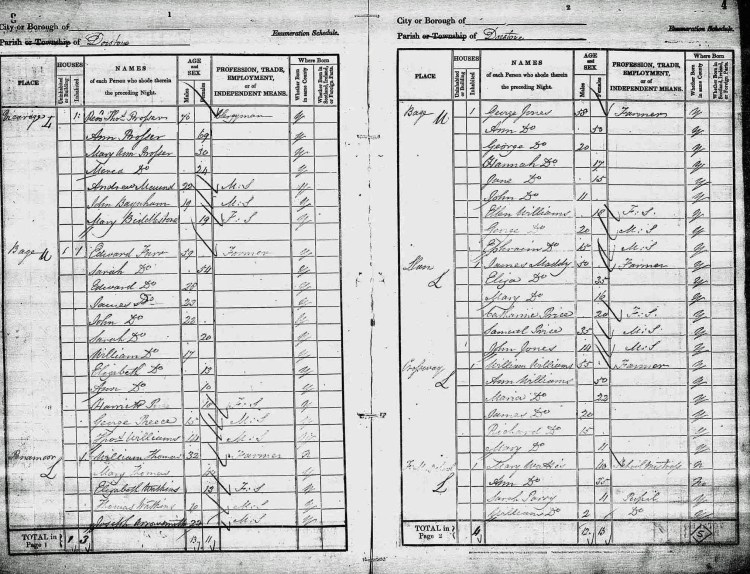 1
City or Borough of
Parish or Township of Dorstone
Enumeration Schedule.
PLACE
HOUSES
Uninhabited or Building
Inhabited
NAMES
of each Person who abode therein the preceding Night.
AGE and SEX
Males
Females
PROFESSION, TRADE, EMPLOYMENT, or of INDEPENDENT MEANS.
Where Born
Whether Born in same County
Whether Born in Scotland, Ireland, or Foreign Parts.
Vicarage 1 Revd Thos Prosser 76 Clergyman y
Ann Prosser 69 y
Mary Ann Prosser 30 y
Do 24 y
Andrew 22 M.S y
John Baynham 19 M.S y
Mary 19 F.S y
Bage 1 1 Edward Farr 59 Farmer y
Sarah Do 54 y
Edward Do 25 y
James Do 23 y
John Do 22 y
Sarah Do 20 y
William Do 17 y
Elizabeth Do 13 y
Ann Do 10 y
Harriett F.S y
George Preece 15 M.S y
Thos Williams 14 M.S
1 William Thomas 32 Farmer
Mary Thomas y
Elizabeth Watkins 13 F.S y
Thomas Watkins 10 M.S y
Joseph 22 M.S y
TOTAL in Page 1 1 3 13 11
2
4
City or Borough of
Parish or Township of Dorstone
Enumeration Schedule.
PLACE
HOUSES
Uninhabited or Building
Inhabited
NAMES
of each Person who abode therein the preceding Night.
AGE and SEX
Males
Females
PROFESSION, TRADE, EMPLOYMENT, or of INDEPENDENT MEANS.
Where Born
Whether Born in same County
Whether Born in Scotland, Ireland, or Foreign Parts.
Bage 1 George Jones 58 Farmer y
Ann Do 50 y
George Do 20 y
Hannah Do 17 y
Jane Do 15 y
John Do 11 y
Ellen Williams 18 F.S. y
George Do 20 M.S y
Ephraim Do 15 M.S y
Llan 1 James Maddy 50 Farmer y
Eliza Do 35 y
Mary Do 16 y
Catharine Price 20 F.S. y
Samuel Price 35 M.S y
John Jones 14 M.S y
Crossway 1 William Williams 55 Farmer y
Ann Williams 50 y
Maria Do 23 y
James Do 20 y
Richard Do 15 y
Mary Do 11 y
1 School
Ann Do 35 No
Sarah Parry 11 Pupil y
William Do 2 Do y
TOTAL in Page 2 4 12 13
5